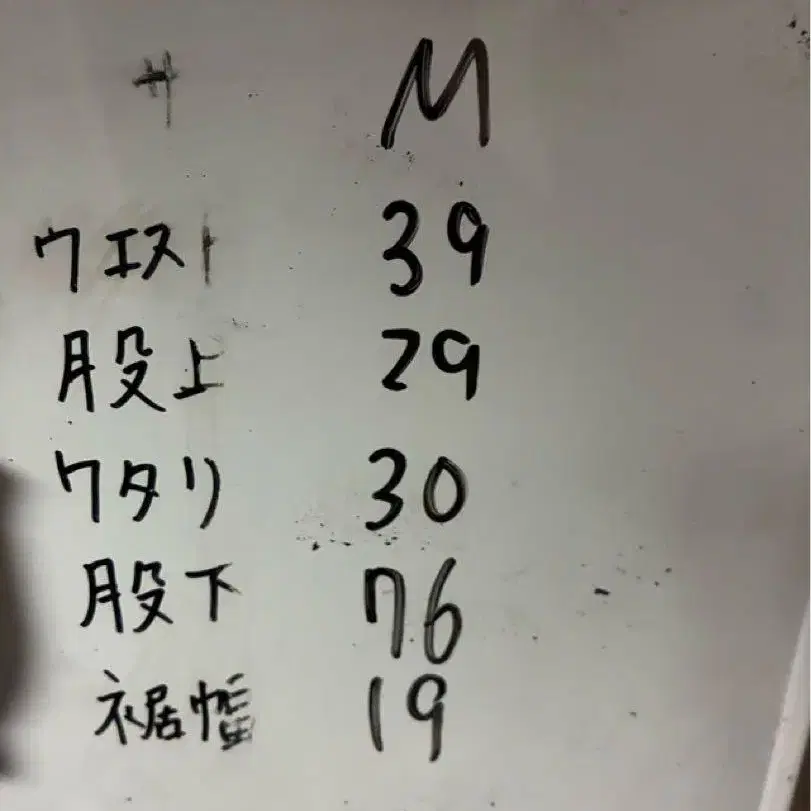 サ M
ウエスト 39
股上 29
ワタリ 30
股下 76
裾幅 19